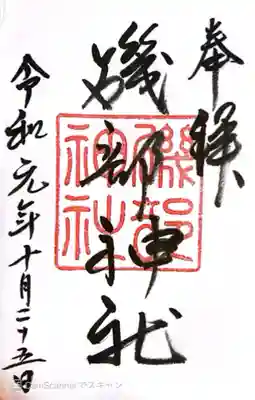 奉拝
磯部神社
磯部
神社
令和元年十月二十五日
CamScannerでスキャン